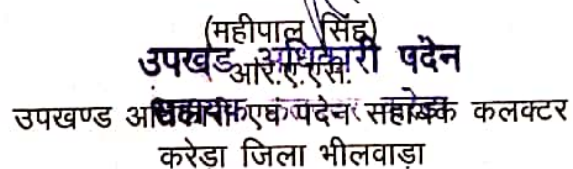 (महीपाल सिंह)
उपखंड अधिकारी पदेन
आर.ए.एस.
उपखण्ड अधिकारी एवं पदेन सहायक कलक्टर
करेडा जिला भीलवाडा